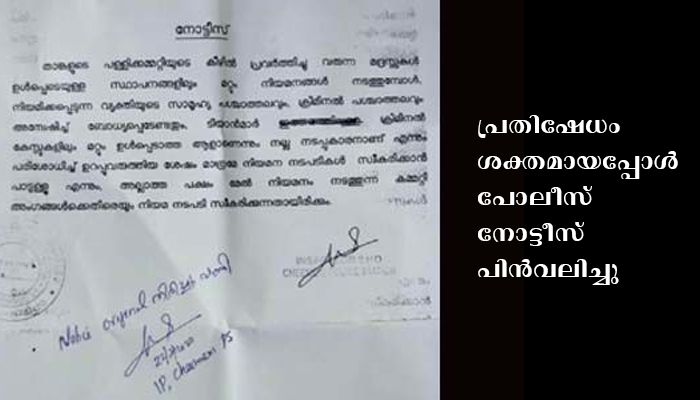 നോട്ടീസ്
താങ്കളുടെ പള്ളികമ്മറ്റിയുടെ കീഴിൽ പ്രവർത്തിച്ചു വരുന്ന മദ്രസ്സകൾ
ഉൾപ്പെടെയുള്ള സ്ഥാപനങ്ങളിലും മറ്റും നിയമനങ്ങൾ നടത്തുമ്പോൾ,
നിയമിക്കപ്പെടുന്ന വ്യക്തിയുടെ സാമൂഹ്യ പശ്ചാത്തലവും, ക്രിമിനൽ പശ്ചാത്തലവും
അന്വേഷിച്ച് ബോധ്യപ്പെടേണ്ടതും, ടിയാൻമാർ ക്രിമിനൽ
കേസ്സുകളിലും മറ്റും ഉൾപ്പെടാത്ത ആളാണേന്നും നല്ല നടപ്പുകാരനാണ് എന്നും
പരിശോധിച്ച് ഉറപ്പുവരുത്തിയ ശേഷം മാത്രമേ നിയമന നടപടികൾ സ്വീകരിക്കാൻ
പാടുള്ളൂ എന്നും, അല്ലാത്ത പക്ഷം മേൽ നിയമനം നടത്തുന്ന കമ്മറ്റി
അംഗങ്ങൾക്കെതിരെയും നിയമ നടപടി സ്വീകരിക്കുന്നതായിരിക്കും.
പ്രതിഷേധം
ശക്തമായപ്പോൾ
പോലീസ്
നോട്ടീസ്
പിൻവലിച്ചു
IP, Cheemeni PS